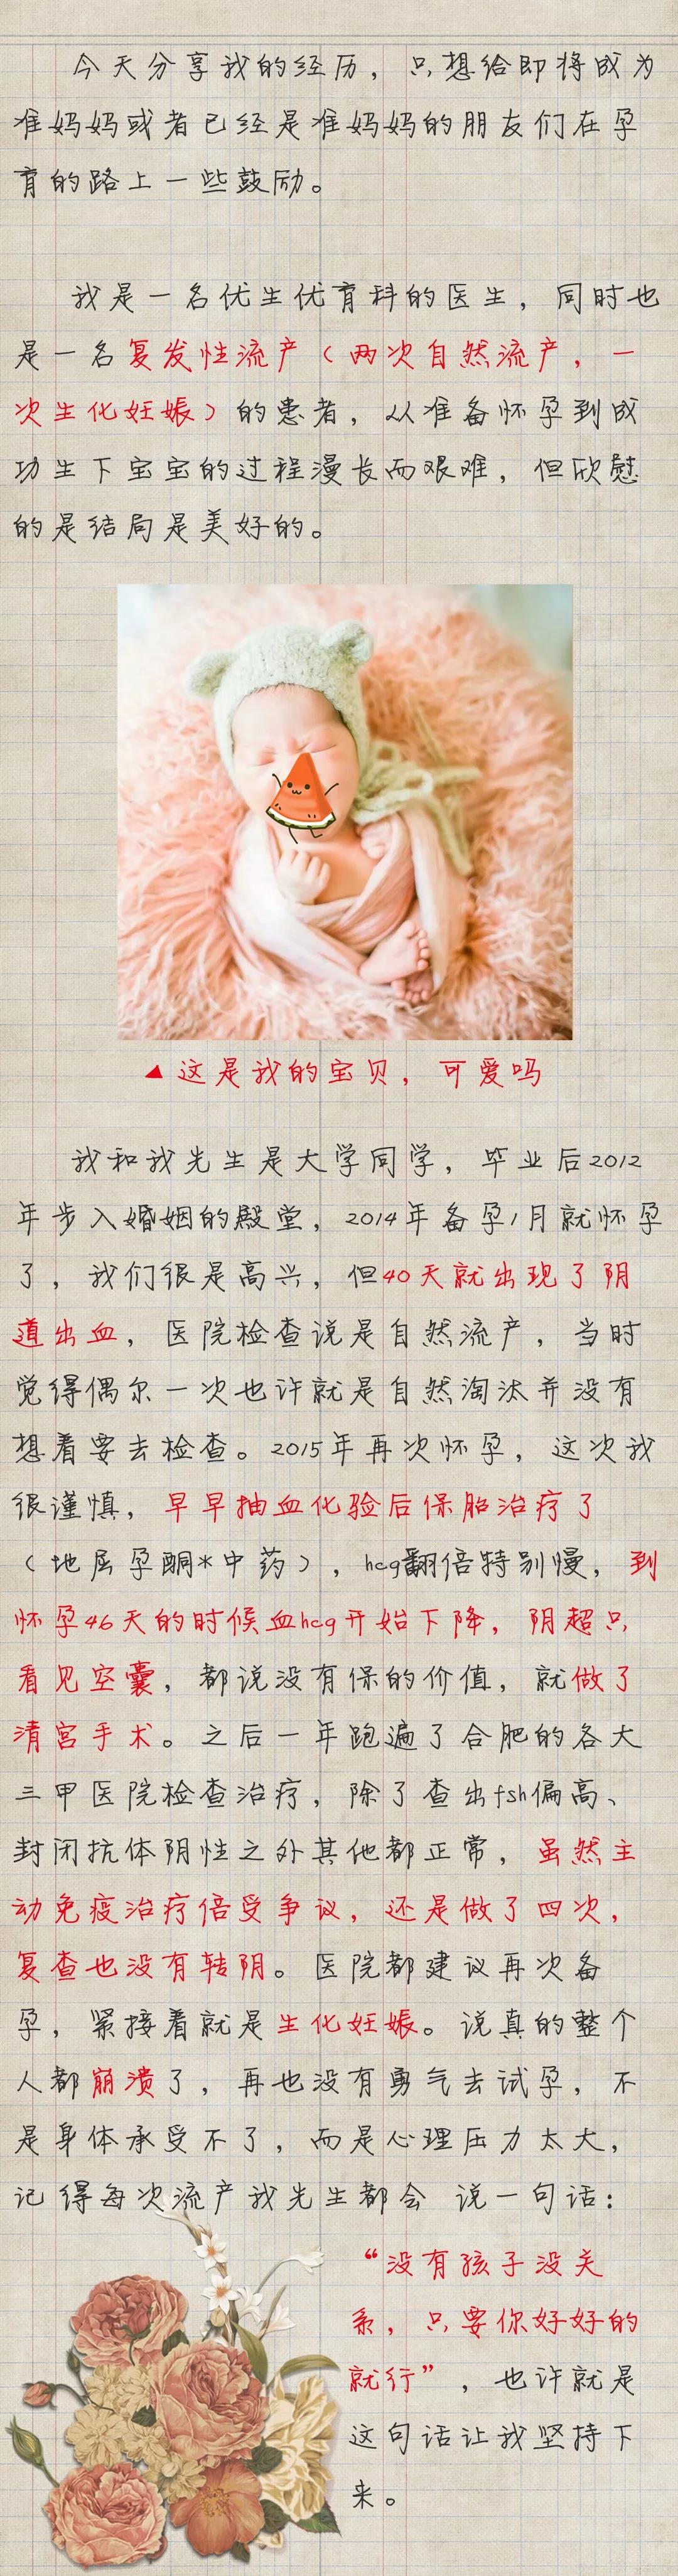 今天分享我的经历，只想给即将成为
准妈妈或者已经是准妈妈的朋友们在孕
育的路上一些鼓励。
我是一名优生优育科的医生，同时也
是一名复发性流产（两次自然流产，一
次生化妊娠）的患者，从准备怀孕到成
功生下宝宝的过程漫长而艰难，但欣慰
的是结局是美好的。
▲这是我的宝贝，可爱吗
我和我先生是大学同学，毕业后2012
年步入婚姻的殿堂，2014年备孕1月就怀孕
了，我们很是高兴，但40天就出现了阴
道出血，医院检查说是自然流产，当时
觉得偶尔一次也许就是自然淘汰并没有
想着要去检查。2015年再次怀孕，这次我
很谨慎，早早抽血化验后保胎治疗了
（地屈孕酮*中药），hcg翻倍特别慢，到
怀孕46天的时候血hcg开始下降，阴超只
看见空囊，都说没有保的价值，就做了
清宫手术。之后一年跑遍了合肥的各大
三甲医院检查治疗，除了查出fsh偏高、
封闭抗体阴性之外其他都正常，虽然主
动免疫治疗倍受争议，还是做了四次，
复查也没有转阴。医院都建议再次备
孕，紧接着就是生化妊娠。说真的整个
人都崩溃了，再也没有勇气去试孕，不
是身体承受不了，而是心理压力太大，
记得每次流产我先生都会 说一句话：
“没有孩子没关
系，只要你好好的
就行”，也许就是
这句话让我坚持下
来。